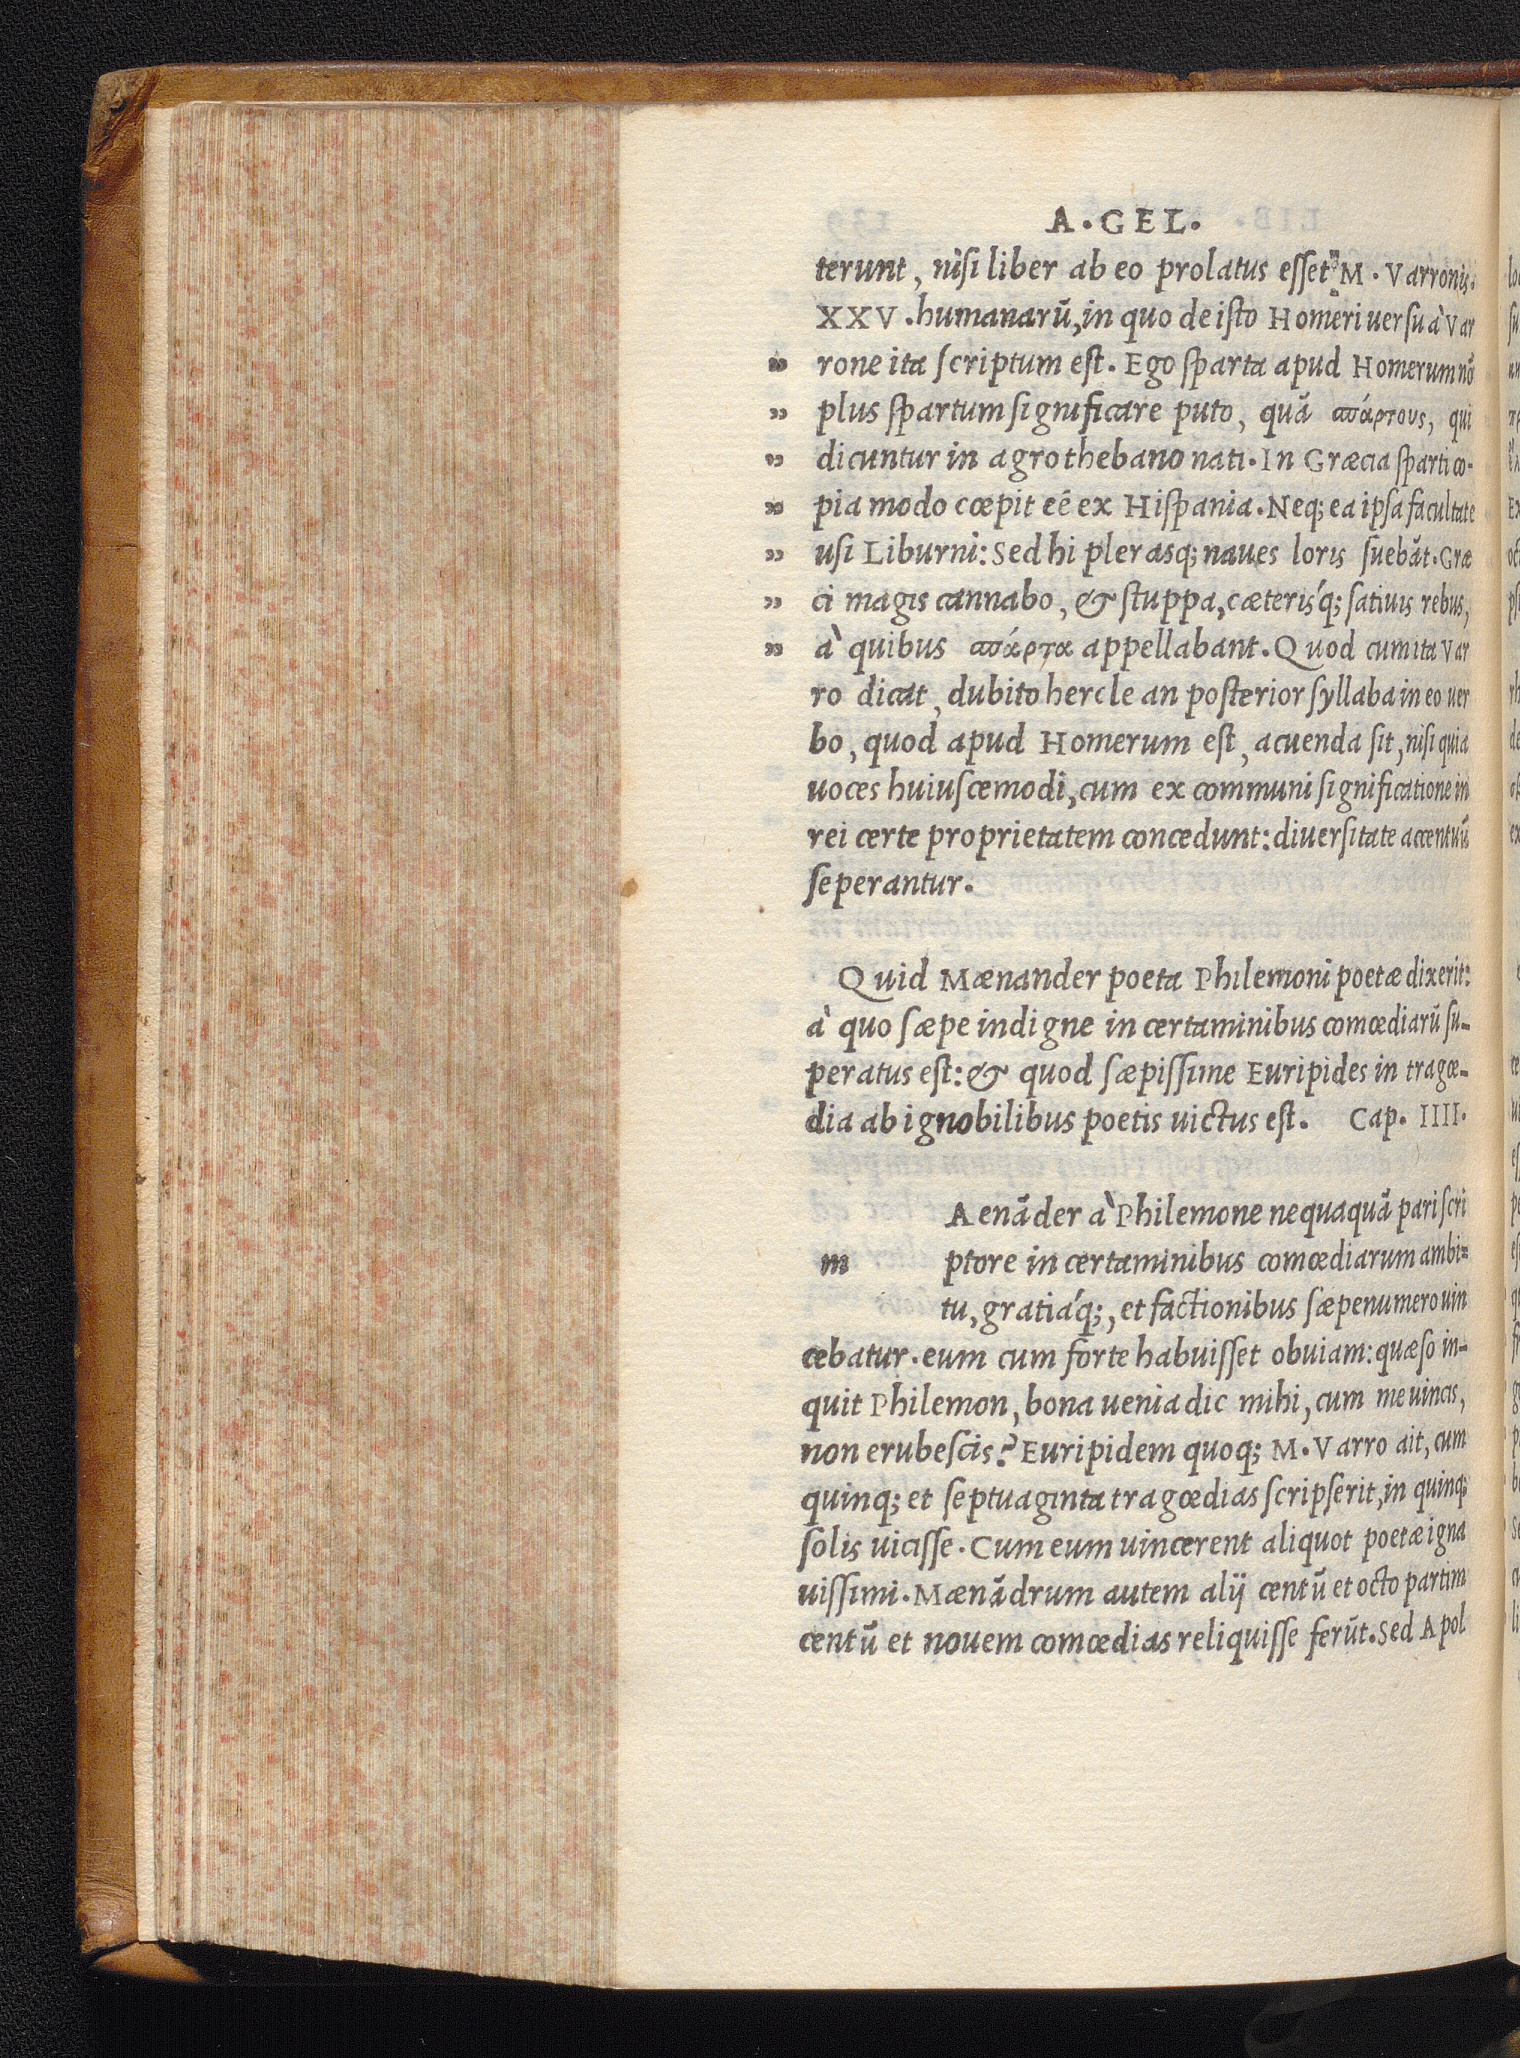 A. GEL.
terunt, nisi liber ab eo prolatus esset M. Varronis.
XXV. humanarū, in quo de isto Homeri uersu à Var
" rone ita scriptum est. Ego sparta apud Homerum nō
" plus spartum significare puto, quā σπάρτους, qui
" dicuntur in agro thebano nati. In Græcia sparti co-
" pia modo cœpit eē ex Hispania. Neq; ea ipsa facultate
" usi Liburni: Sed hi plerasq; naues loris suebāt. Græ
" ci magis cannabo, & stuppa, cæteris'q; satiuis rebus,
" à quibus σπάρτα appellabant. Quod cum ita Var
ro dicat, dubito hercle an posterior syllaba in eo uer
bo, quod apud Homerum est, acuenda sit, nisi quia
uoces huiuscemodi, cum ex communi significatione in
rei certe proprietatem concedunt: diuersitate accentuū
seperantur.
Quid Mænander poeta Philemoni poetæ dixerit:
à quo sæpe indigne in certaminibus comœdiarū su-
peratus est: & quod sæpissime Euripides in tragœ-
dia ab ignobilibus poetis uictus est. Cap. IIII.
Aenāder à Philemone nequaquā pari scri
m ptore in certaminibus comœdiarum ambi-
tu, gratiá'q;, et factionibus sæpenumero uin
cebatur. eum cum forte habuisset obuiam: quæso in-
quit Philemon, bona uenia dic mihi, cum me uincis,
non erubescis? Euripidem quoq; M. Varro ait, cum
quinq; et septuaginta tragœdias scripserit, in quinq;
solis uicisse. Cum eum uincerent aliquot poetæ igna
uissimi. Mænādrum autem alij centū et octo partim
centū et nouem comœdias reliquisse ferūt. Sed Apol